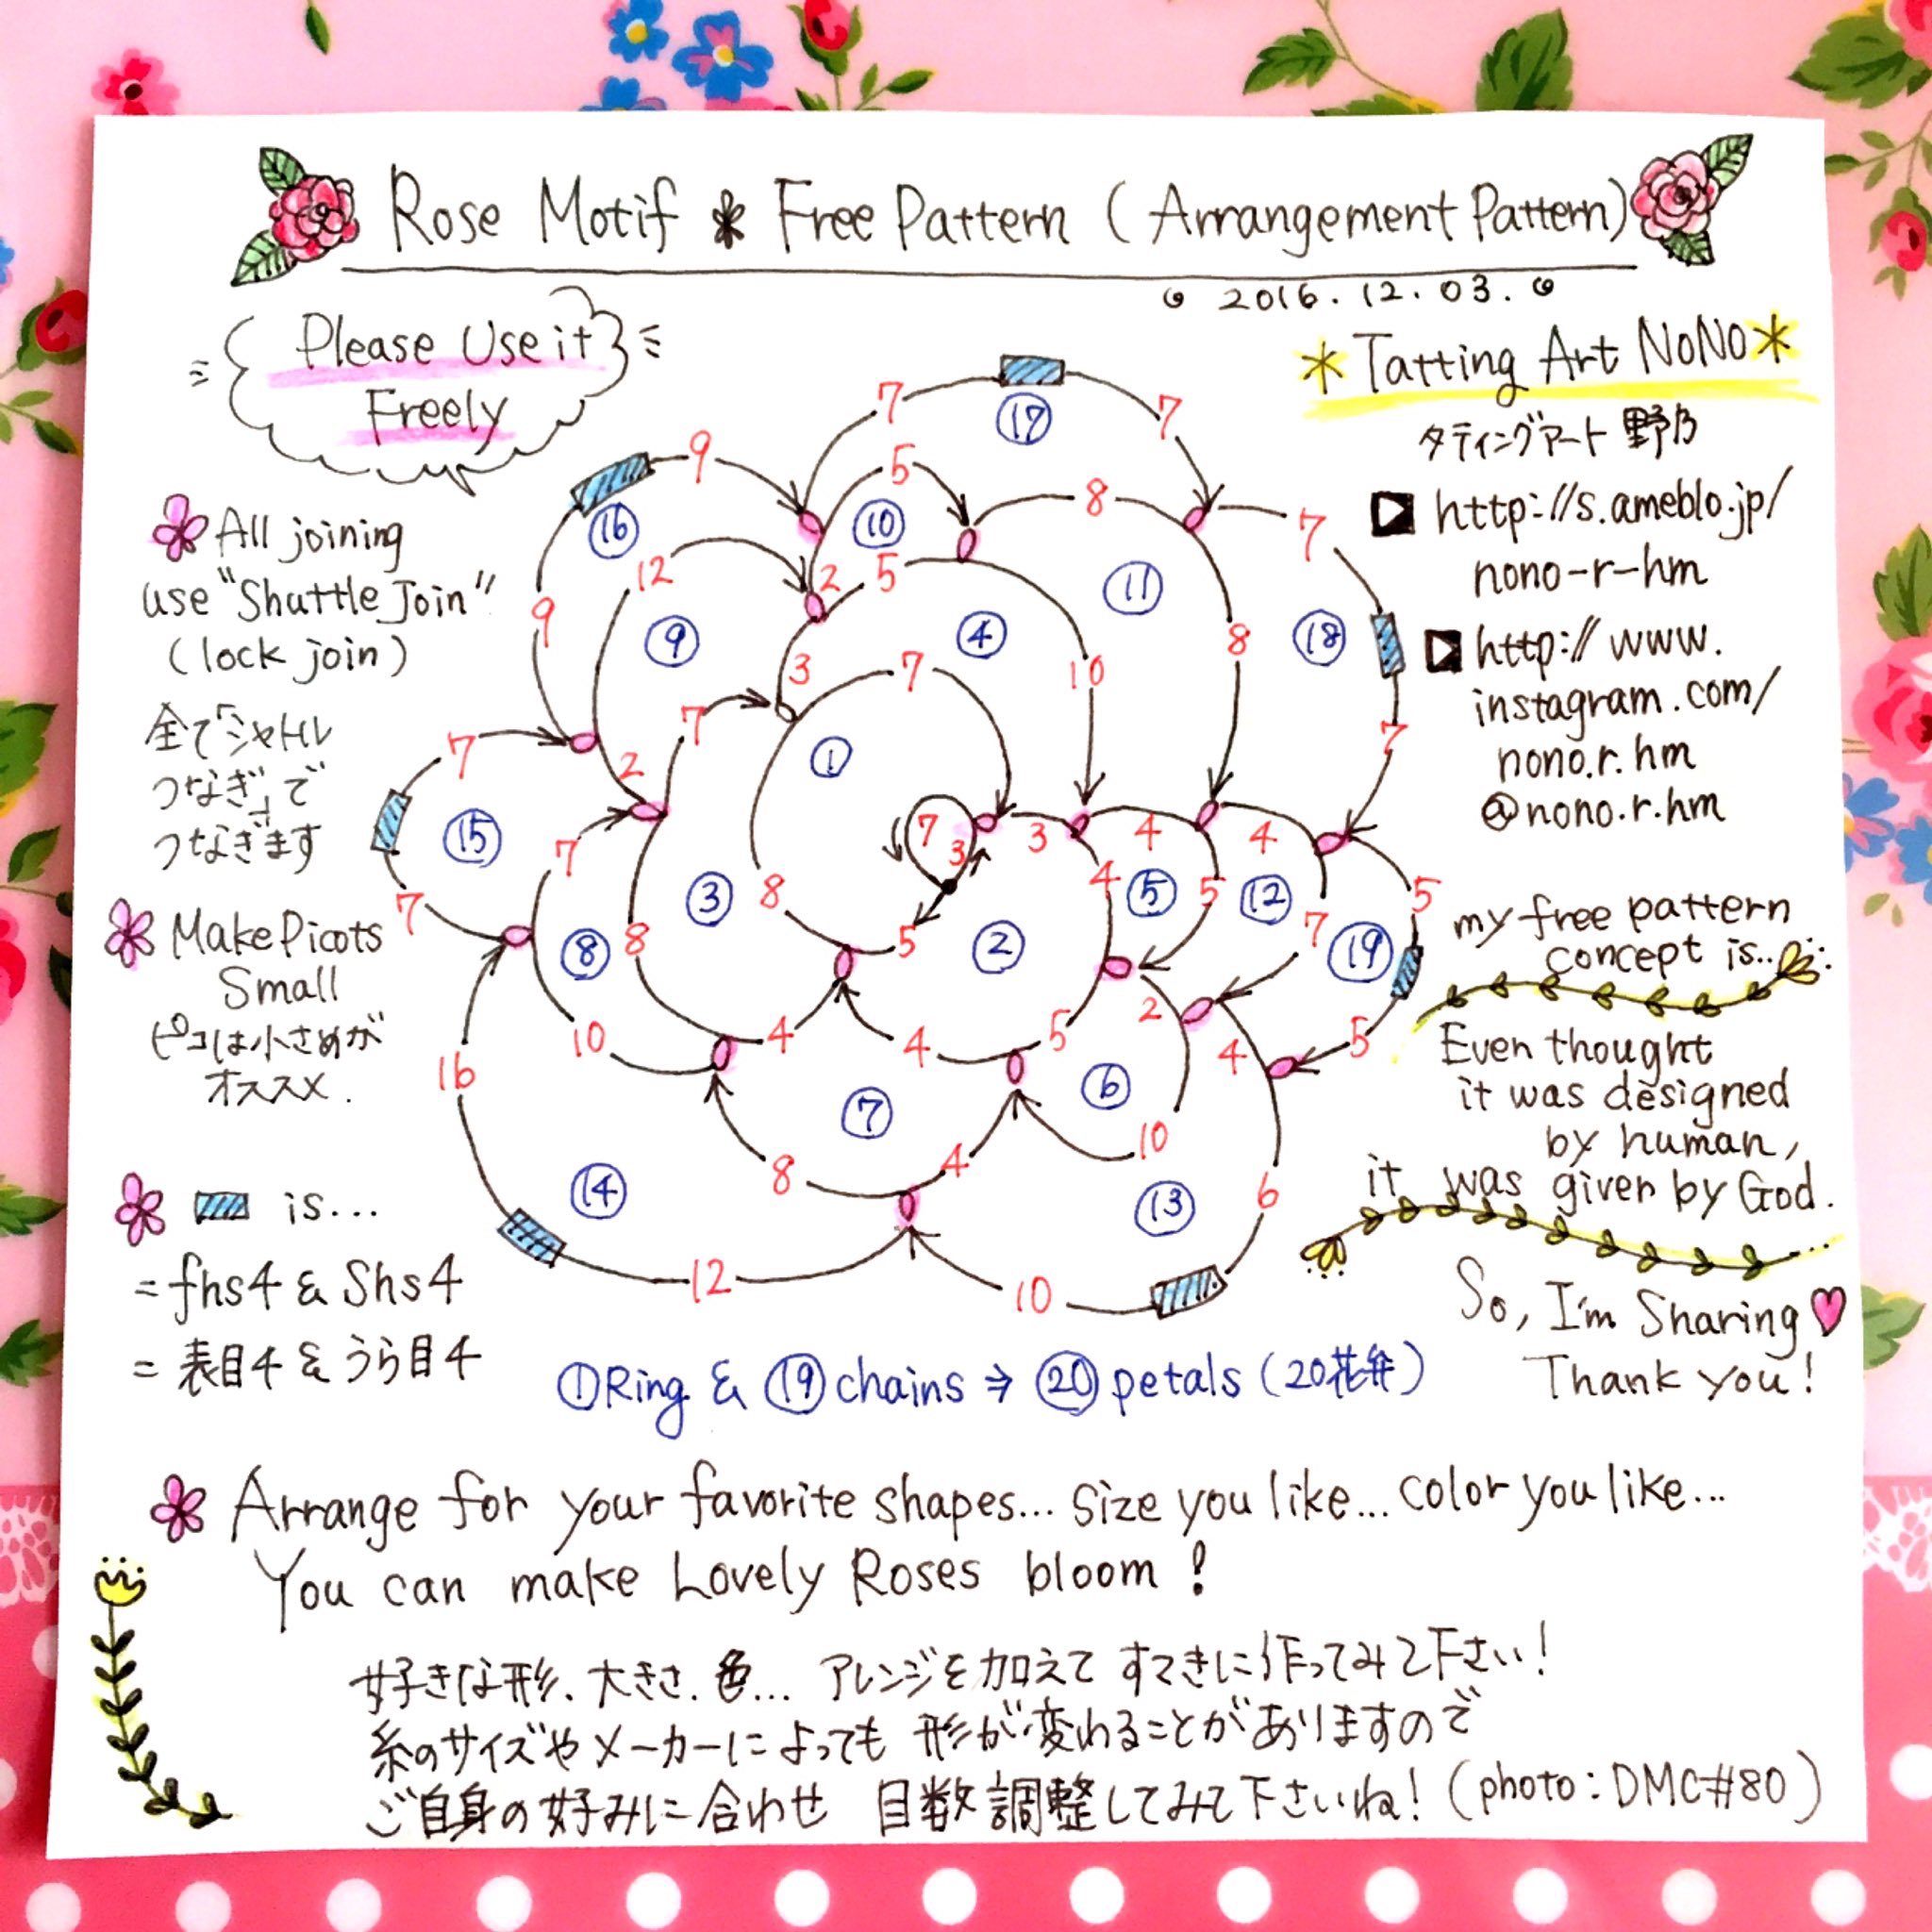 Rose Motif * Free Pattern (Arrangement Pattern)
2016.12.03.
Please Use it
Freely
*Tatting Art NoNo*
タティングアート 野乃
▶ http://s.ameblo.jp/
nono-r-hm
▶ http://www.
instagram.com/
nono.r.hm
@nono.r.hm
All joining
use "Shuttle Join"
(lock join)
全て「シャトル
つなぎ」で
つなぎます
Make Picots
Small
ピコは小さめが
オススメ.
is...
= fhs4 & Shs4
= 表目4 & うら目4
7 7
⑰
9 5 8 7
⑯ ⑩
12 2 5 ⑪
9 ⑨ ④ 8 ⑱
3 7 10
7 7 2 ① 7
⑮ 7 7 3 3 4 4
7 8 ③ 8 5 ② 4 ⑤ 5 ⑫ 7 ⑲ 5
⑧
10 4 4 5 2 4 5
16 ⑦ ⑥
8 4 10
⑭ ⑬ 6
12 10
①Ring & ⑲chains ⇒ ⑳petals (20花弁)
my free pattern
concept is...
Even thought
it was designed
by human,
it was given by God.
So, I'm Sharing
Thank you!
Arrange for your favorite shapes... size you like... color you like...
You can make Lovely Roses bloom!
好きな形、大きさ、色... アレンジを加えて すてきに作ってみて下さい!
糸のサイズやメーカーによっても 形が変わることがありますので
ご自身の好みに合わせ 目数調整してみて下さいね! (photo: DMC#80)